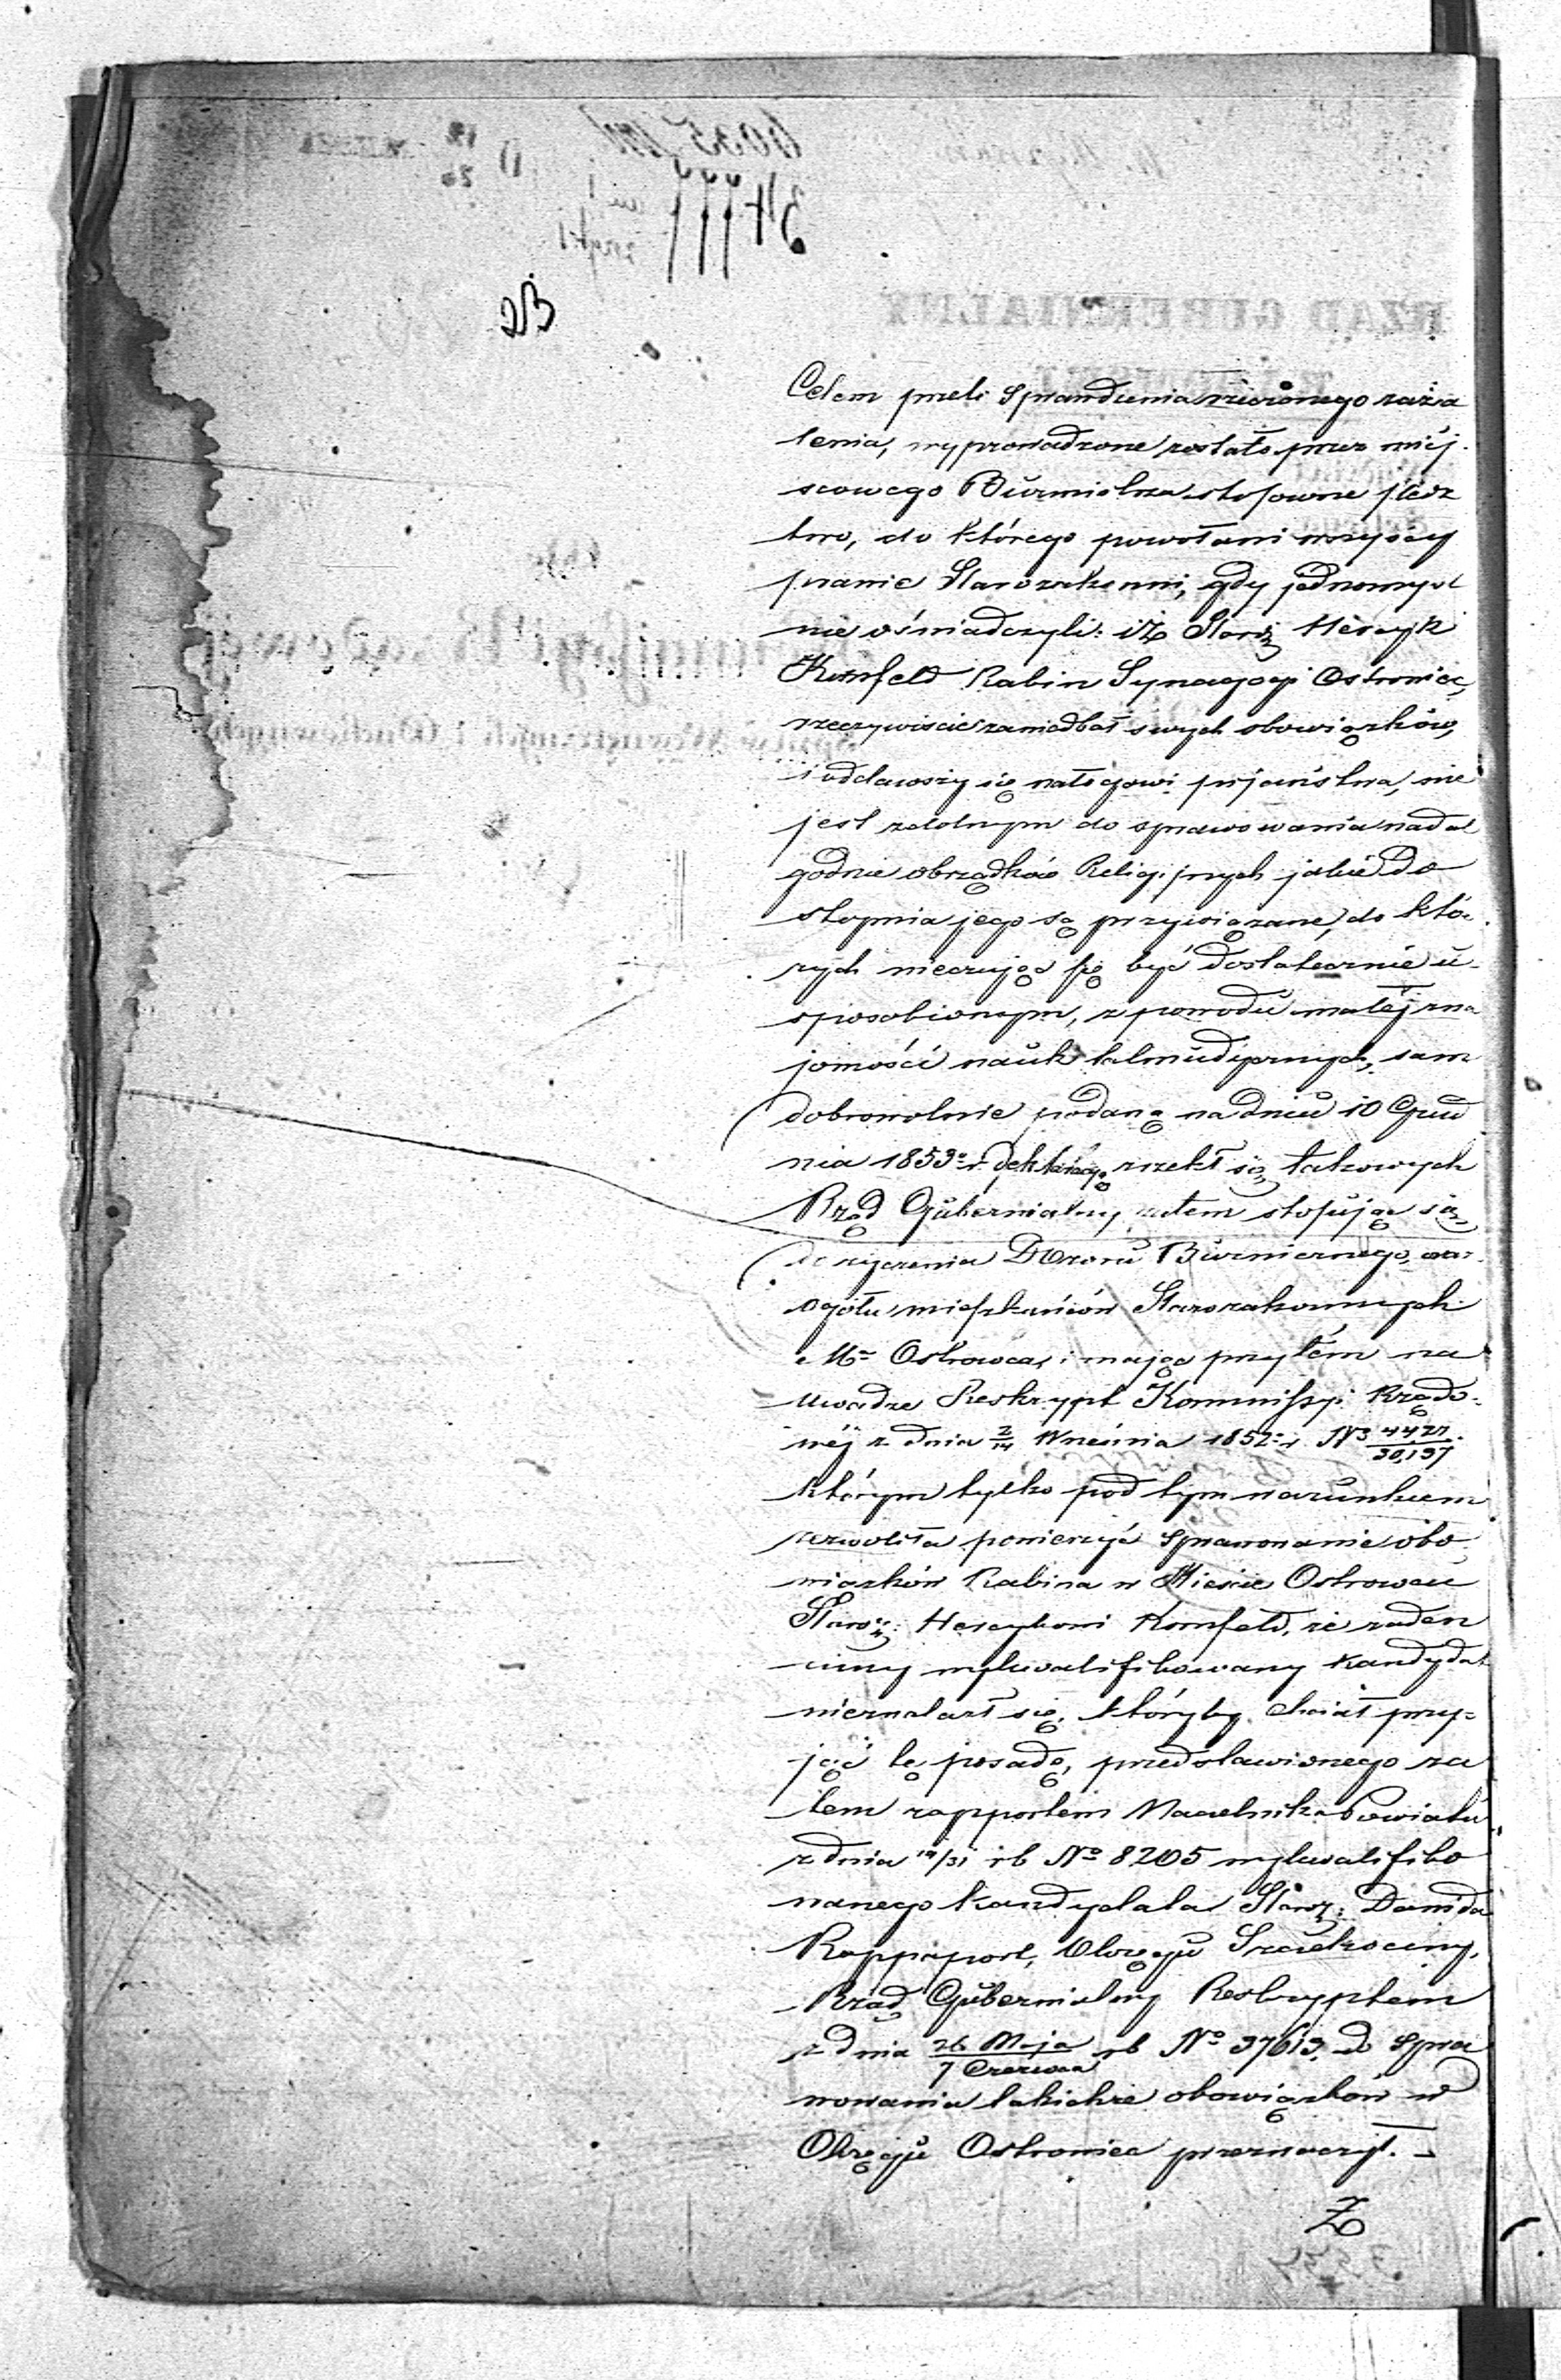 23
Celem przeko sprawdzenia rzeczonego zaża
lenia, wyprowadzone zostało przez miej
scowego Burmistrza stosowne śledz
two, do którego powołani wszyscy
prawie Starozakonni, gdy jednomyśl
nie oświadczyli: iż Staroz. Herszyk
Kornfeld Rabin Synagogi Ostrowiec,
rzeczywiście zaniedbał swych obowiązków,
i oddawszy się nałogowi pijaństwa, nie
jest zdolnym do sprawowania nadal
godnie obrządków Religijnych jakie do
stopnia jego są przywiązane, do któ-
rych nieczując się być dostatecznie u-
sposobionym, z powodu małej zna
jomości nauk talmudycznych, sam
dobrowolnie podaną na dniu 10 Grud
nia 1853 r. zrzekł się takowych
Rząd Gubernialny zatem stosując się
do życzenia Dozoru Bużniczego, oraz
ogółu mieszkańców Starozakonnych
Mta Ostrowca, i mając przytém na
uwadze Reskrypt Kommissyi Rządo-
wéj z dnia 2/14 Września 1852 r. N 4427/30,197
którym tylko pod tym warunkiem
zezwoliła powierzyć sprawowanie obo
wiązków Rabina w Mieście Ostrowcu
Staroz: Herszykowi Kornfeld, że żaden
inny wykwalifikowany Kandydat
nieznalazł się, któryby chciał przy-
jąć tę posadę, przedstawionego za
tem rapportem Naczelnika Powiatu
z dnia 19/31 rb No 8205 wykwalifiko
wanego Kandydata Staroz: Dawida
Rappaport, Okręgu Szczekociny,
Rząd Gubernialny Reskryptem
z dnia 26 Maja/7 Czerwca rb No 37613 do spra
wowania takichże obowiązków w
Okręgu Ostrowiec przeznaczył. –
Z